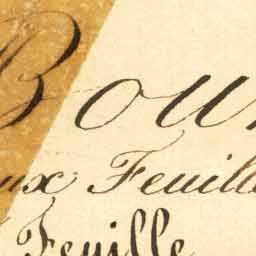 Bou
ux Feuill
Feuille